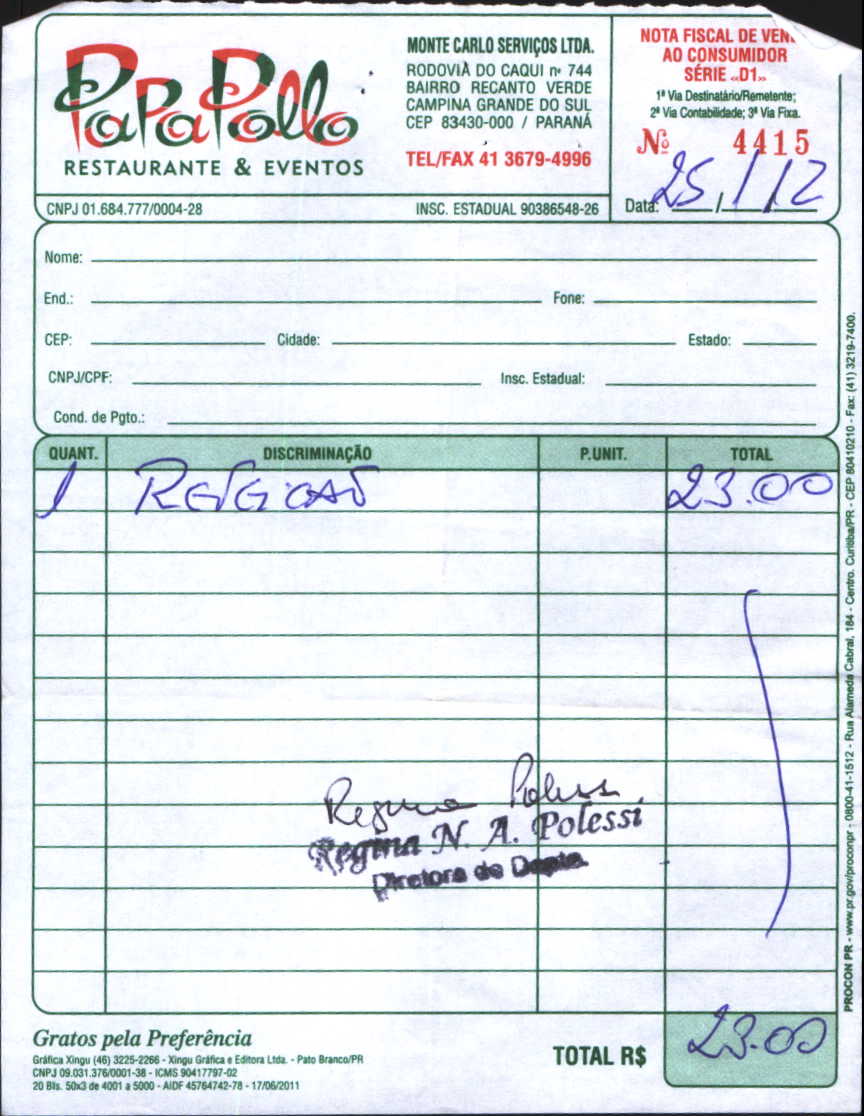 PaPaPollo
RESTAURANTE & EVENTOS
MONTE CARLO SERVIÇOS LTDA.
RODOVIA DO CAQUI nº 744
BAIRRO RECANTO VERDE
CAMPINA GRANDE DO SUL
CEP 83430-000 / PARANÁ
TEL/FAX 41 3679-4996
NOTA FISCAL DE VEN
AO CONSUMIDOR
SÉRIE «D1»
1ª Via Destinatário/Remetente;
2ª Via Contabilidade; 3ª Via Fixa.
Nº 4415
Data: 25/1/12
CNPJ 01.684.777/0004-28 INSC. ESTADUAL 90386548-26
Nome:
End.: Fone:
CEP: Cidade: Estado:
CNPJ/CPF: Insc. Estadual:
Cond. de Pgto.:
QUANT. DISCRIMINAÇÃO P.UNIT. TOTAL
1 REFEICAO 23.00
Regina Poless
Regina N. A. Polessi
Diretora de Depto.
TOTAL R$ 23.00
Gratos pela Preferência
Gráfica Xingu (46) 3225-2266 - Xingu Gráfica e Editora Ltda. - Pato Branco/PR
CNPJ 09.031.376/0001-38 - ICMS 90417797-02
20 Bls. 50x3 de 4001 a 5000 - AIDF 45764742-78 - 17/06/2011
PROCON PR - www.pr.gov/proconpr - 0800-41-1512 - Rua Alameda Cabral, 184 - Centro. Curitiba/PR - CEP 80410210 - Fax: (41) 3219-7400.